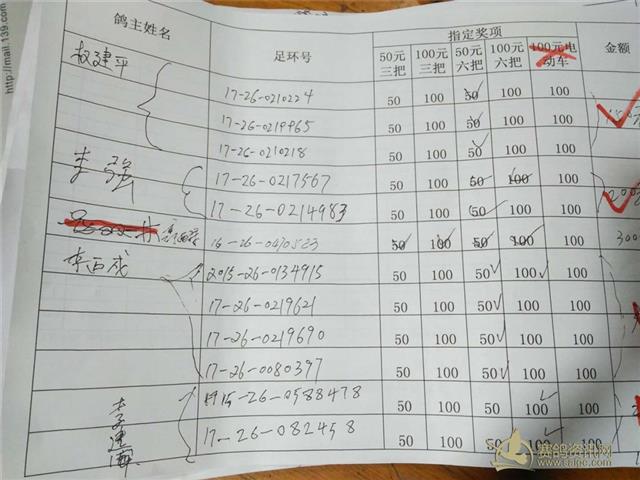 http://mail.139.com
鸽主姓名 足环号 指定奖项 金额
50元三把 100元三把 50元六把 100元六把 100元电动车
权建平
17-26-0210224 50 100 50 100 100
17-26-0219965 50 100 50 100 100
17-26-0210218 50 100 50 100 100
李强
17-26-0217567 50 100 50 100 100
17-26-0214983 50 100 50 100 100
50 100 50 100 100 300
李百成 2015-26-0134915 50 100 50 100 100
17-26-0219621 50 100 50 100 100
17-26-0219690 50 100 50 100 100
17-26-0080397 50 100 50 100 100
-26-0588478 50 100 50 100 100
17-26-082458 50 100 50 100 100
赛鸽资讯网
www.saige.com